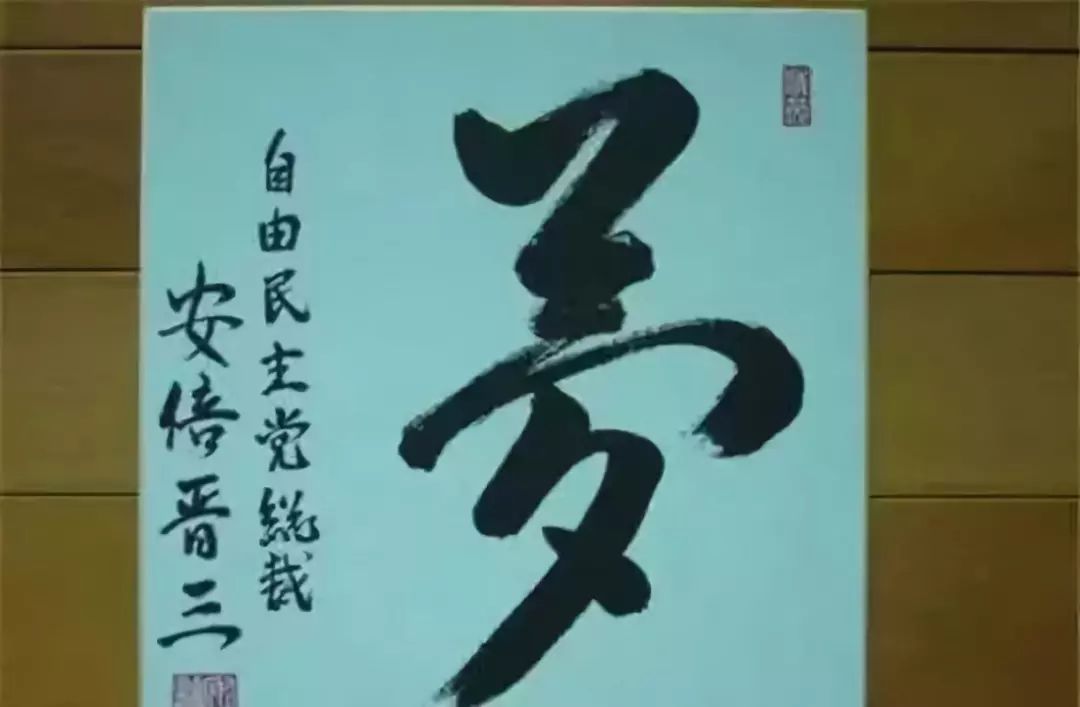 夢
自由民主党総裁
安倍晋三